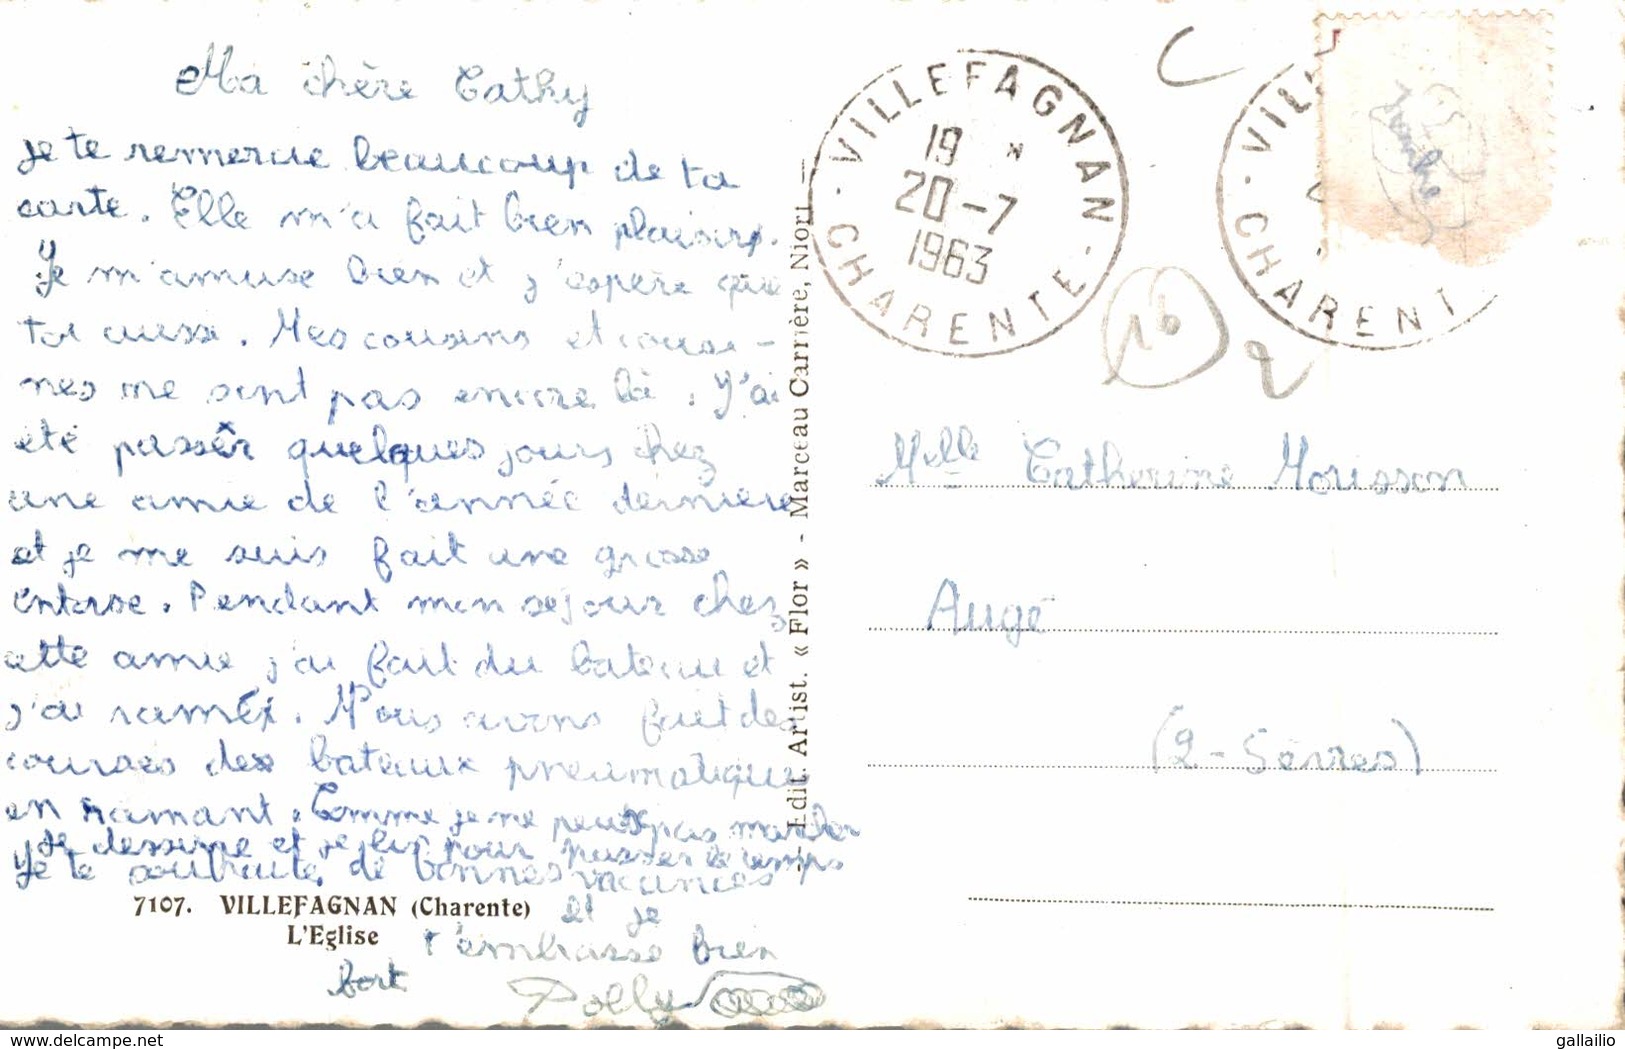 Ma chère Cathy
Je te remercie beaucoup de ta
carte. Elle m'a fait bien plaisir.
Je m'amuse bien et j'espère que
toi aussi. Mes cousins et cousi-
nes ne sont pas encore là. J'ai
été passer quelques jours chez
une amie de l'année dernière
et je me suis fait une grosse
entorse. Pendant mon séjour chez
cette amie j'ai fait du bateau et
j'ai ramé. Nous avons fait des
courses des bateaux pneumatique
en ramant. Comme je ne peux pas marcher
je dessine et je lis pour passer le temps
Je te souhaite de bonnes vacances
et je
t'embrasse bien
fort
Polly
7107. VILLEFAGNAN (Charente)
L'Eglise
Edit. Artist. « Flor » - Marceau Carrière, Niort
VILLEFAGNAN
19 *
20-7
1963
CHARENTE
VIL
CHARENT
16
2
Melle Catherine Morisson
Augé
(2-Sèvres)
gallailio
www.delcampe.net